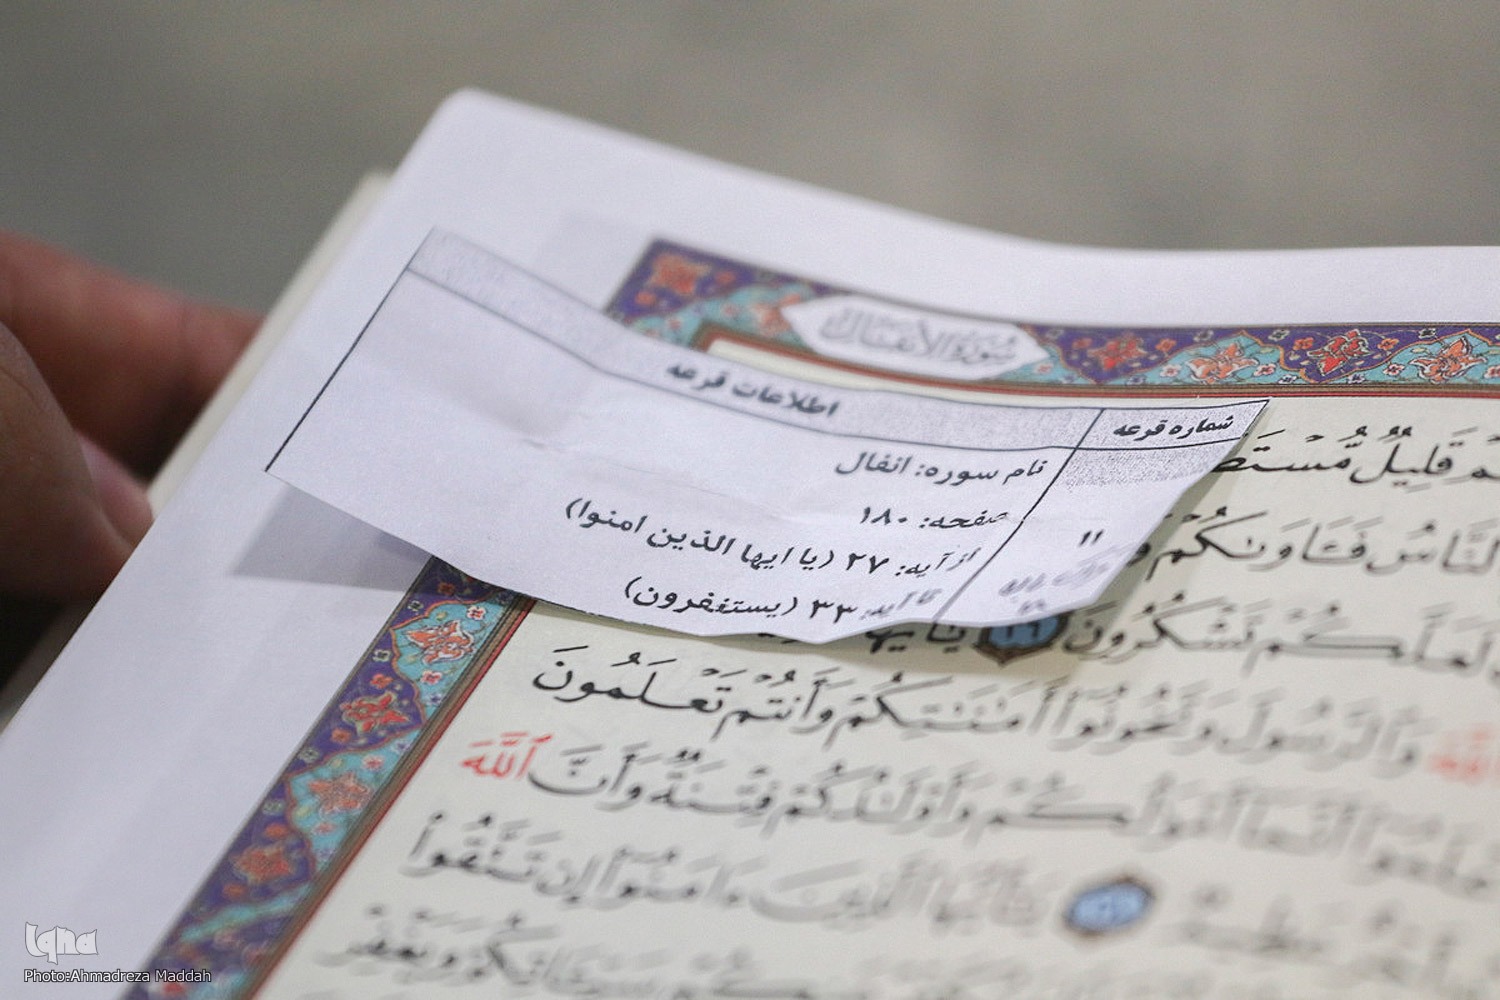 سُورَةُ الأَنفَالِ
شماره قرعه
اطلاعات قرعه
نام سوره: انفال
صفحه: ۱۸۰
از آیه: ۲۷ (یا ایها الذین امنوا)
تا آیه: ۳۳ (یستغفرون)
۱۱
قَلِيلٌ مُّسْتَضْ
النَّاسُ فَـَٔاوَىٰكُمْ وَ
لَعَلَّكُمْ تَشْكُرُونَ ٢٦ يَٰٓأَيُّهَا
ٱللَّهَ وَٱلرَّسُولَ وَتَخُونُوٓا۟ أَمَٰنَٰتِكُمْ وَأَنتُمْ تَعْلَمُونَ
أَنَّمَآ أَمْوَٰلُكُمْ وَأَوْلَٰدُكُمْ فِتْنَةٌ وَأَنَّ ٱللَّهَ
يَٰٓأَيُّهَا ٱلَّذِينَ ءَامَنُوٓا۟ إِن تَتَّقُوا۟
Iqna
Photo:Ahmadreza Maddah